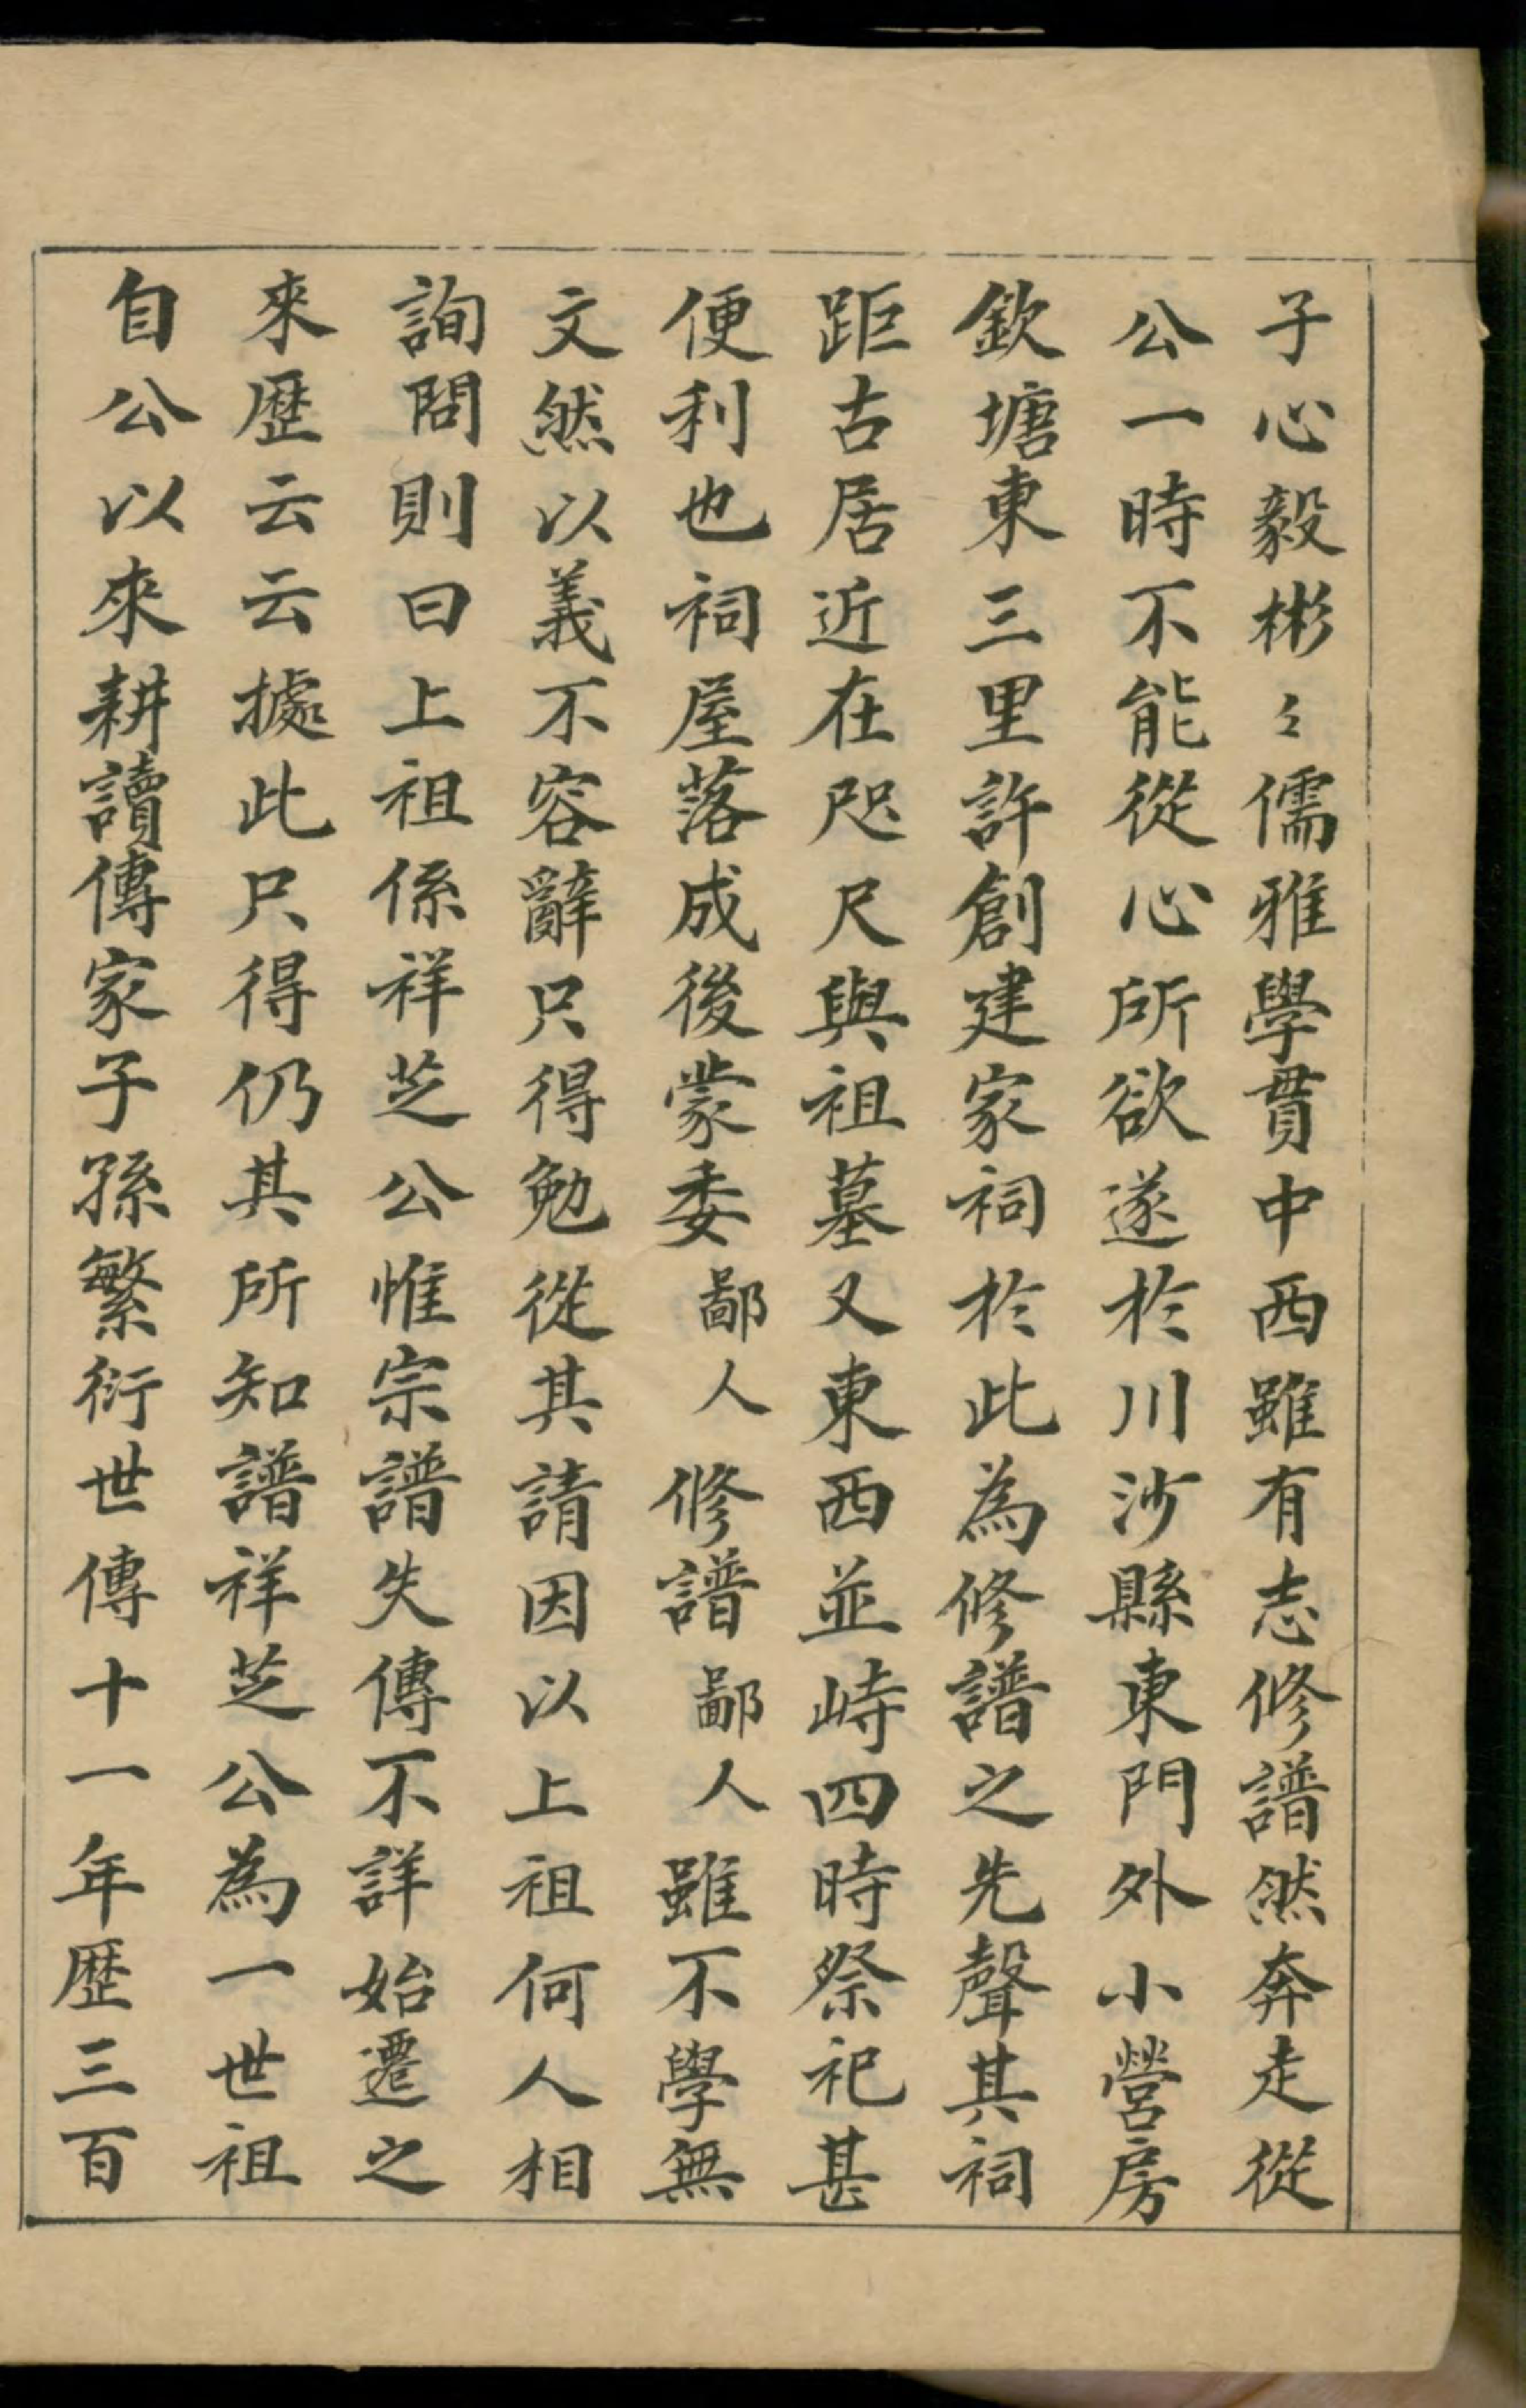 子心毅彬〻儒雅學貫中西雖有志修譜然奔走從
公一時不能從心所欲遂於川沙縣東門外小營房
欽塘東三里許創建家祠於此為修譜之先聲其祠
距古居近在咫尺與祖墓又東西並峙四時祭祀甚
便利也祠屋落成後蒙委鄙人修譜鄙人雖不學無
文然以義不容辭只得勉從其請因以上祖何人相
詢問則曰上祖係祥芝公惟宗譜失傳不詳始遷之
來歷云云據此只得仍其所知譜祥芝公為一世祖
自公以來耕讀傳家子孫繁衍世傳十一年歷三百